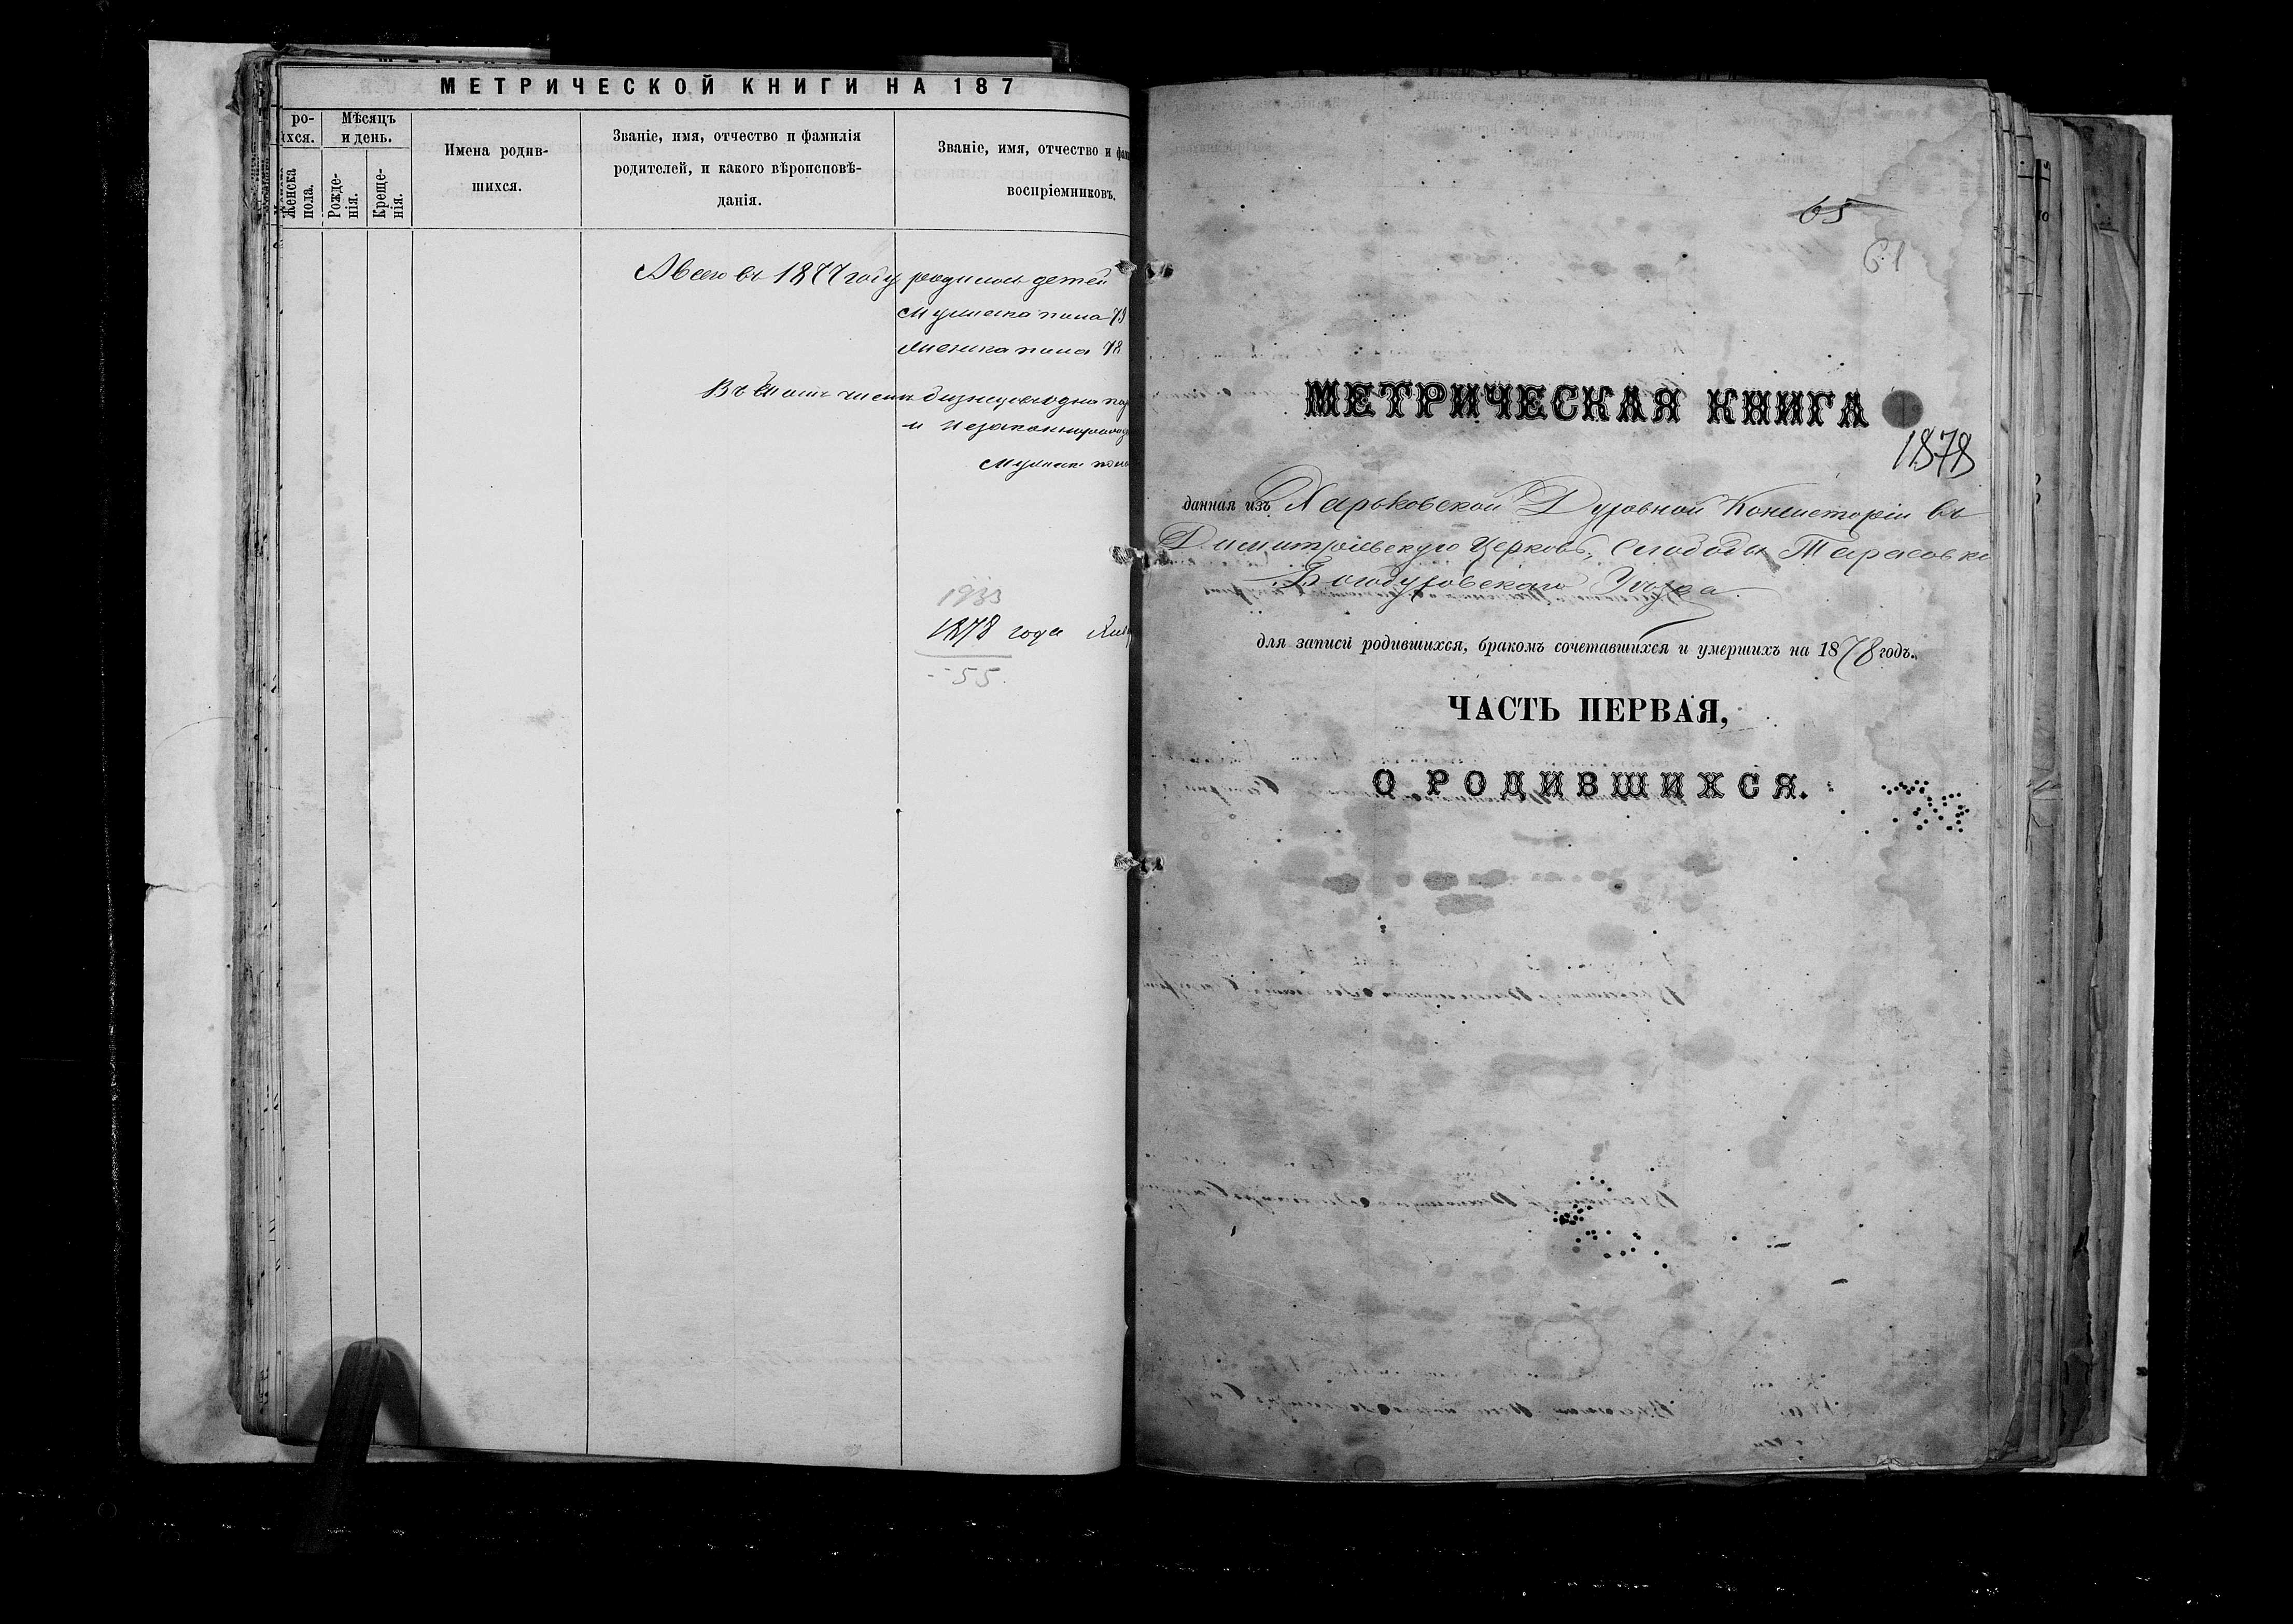 МЕТРИЧЕСКОЙ КНИГИ НА 187
ро-
ихся.
Мѣсяцъ
и день.
Женска
пола.
Рожде-
нія.
Креще-
нія.
Имена родив-
шихся.
Званіе, имя, отчество и фамилія
родителей, и какого вѣроисповѣ-
данія.
Званіе, имя, отчество и фам
воспріемниковъ.
А всего въ 1877 году родилось детей
Мужеска пола 79
Женска пола 78
Въ томъ числѣ
и незаконнорожд
Мужеск пола
1933
1878 года
55
65
61
МЕТРИЧЕСКАЯ КНИГА
1878
данная изъ Харьковской Духовной Консисторіи въ
Димитріевскую Церковь, Слободы Тарасовки
Богодуховскаго Уѣзда.
для записи родившихся, бракомъ сочетавшихся и умершихъ на 1878 годъ.
ЧАСТЬ ПЕРВАЯ,
О РОДИВШИХСЯ.